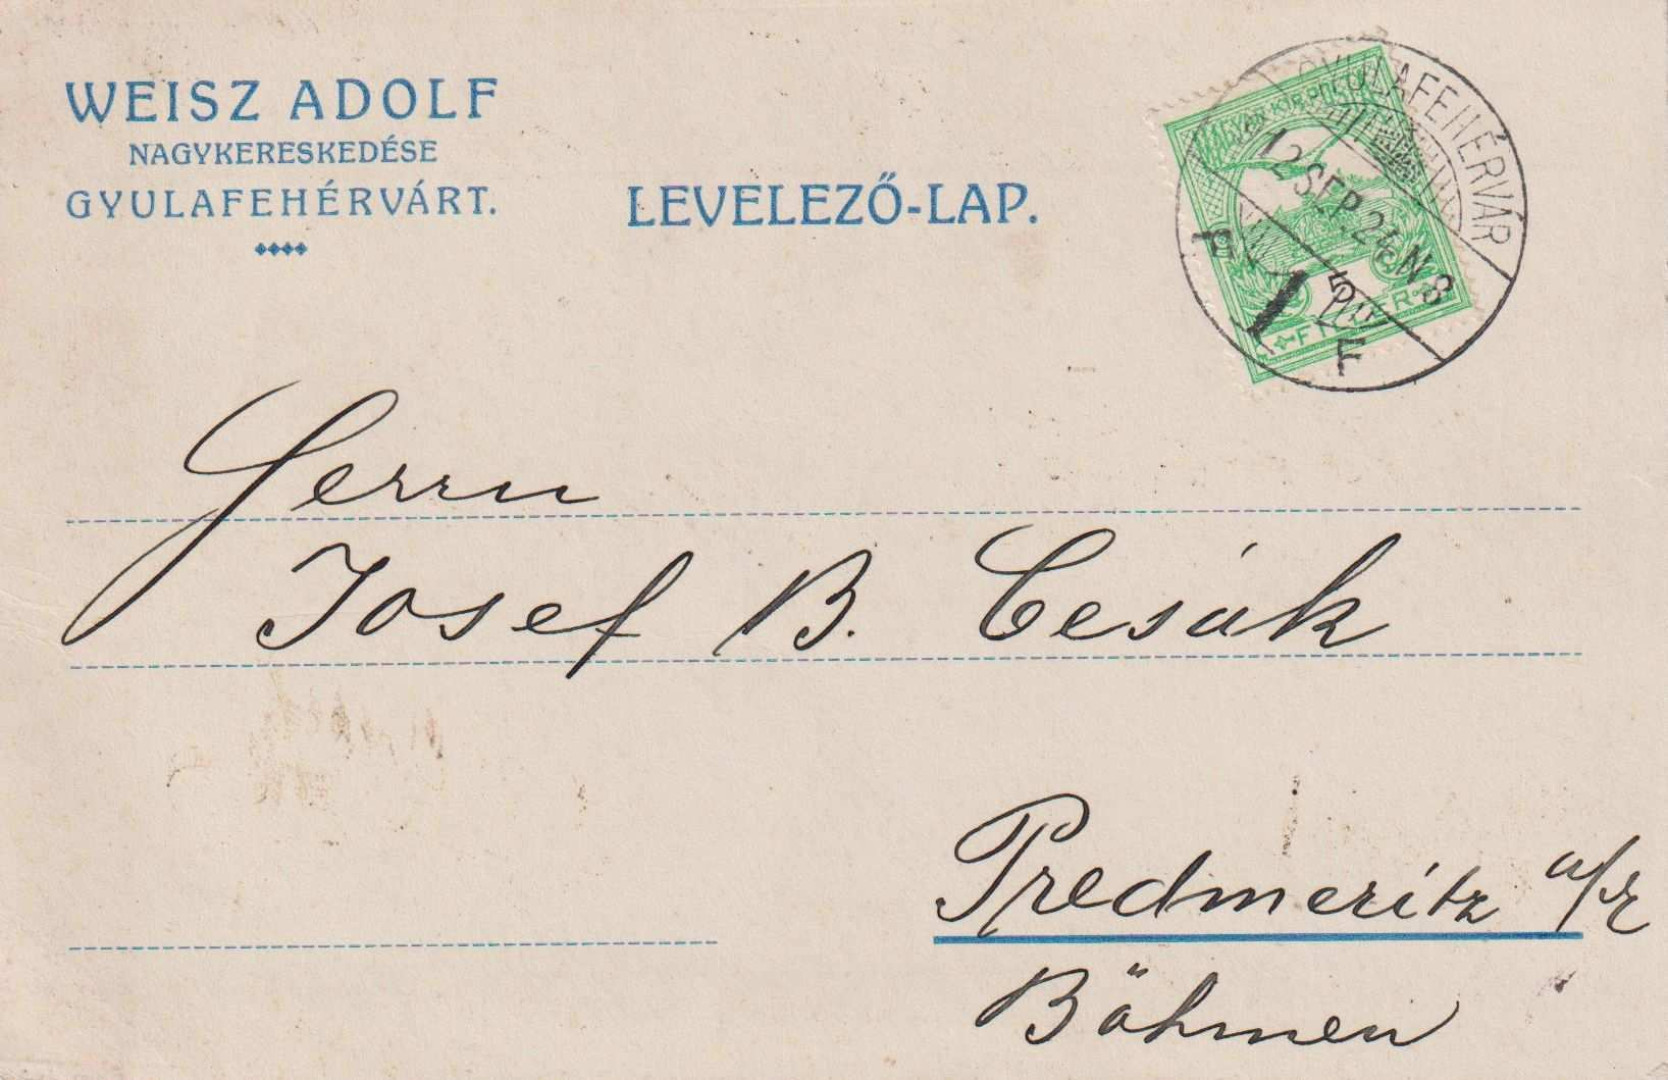 WEISZ ADOLF
NAGYKERESKEDÉSE
GYULAFEHÉRVÁRT.
LEVELEZŐ-LAP.
GYULAFEHÉRVÁR
12 SEP. 24. N 8
F
5
F
Herrn
Josef B. Cesák
Predmeritz a/E
Böhmen